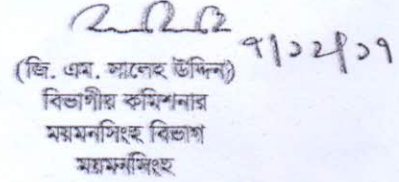 ৭/১২/১৭
(জি. এম. সালেহ উদ্দিন)
বিভাগীয় কমিশনার
ময়মনসিংহ বিভাগ
ময়মনসিংহ